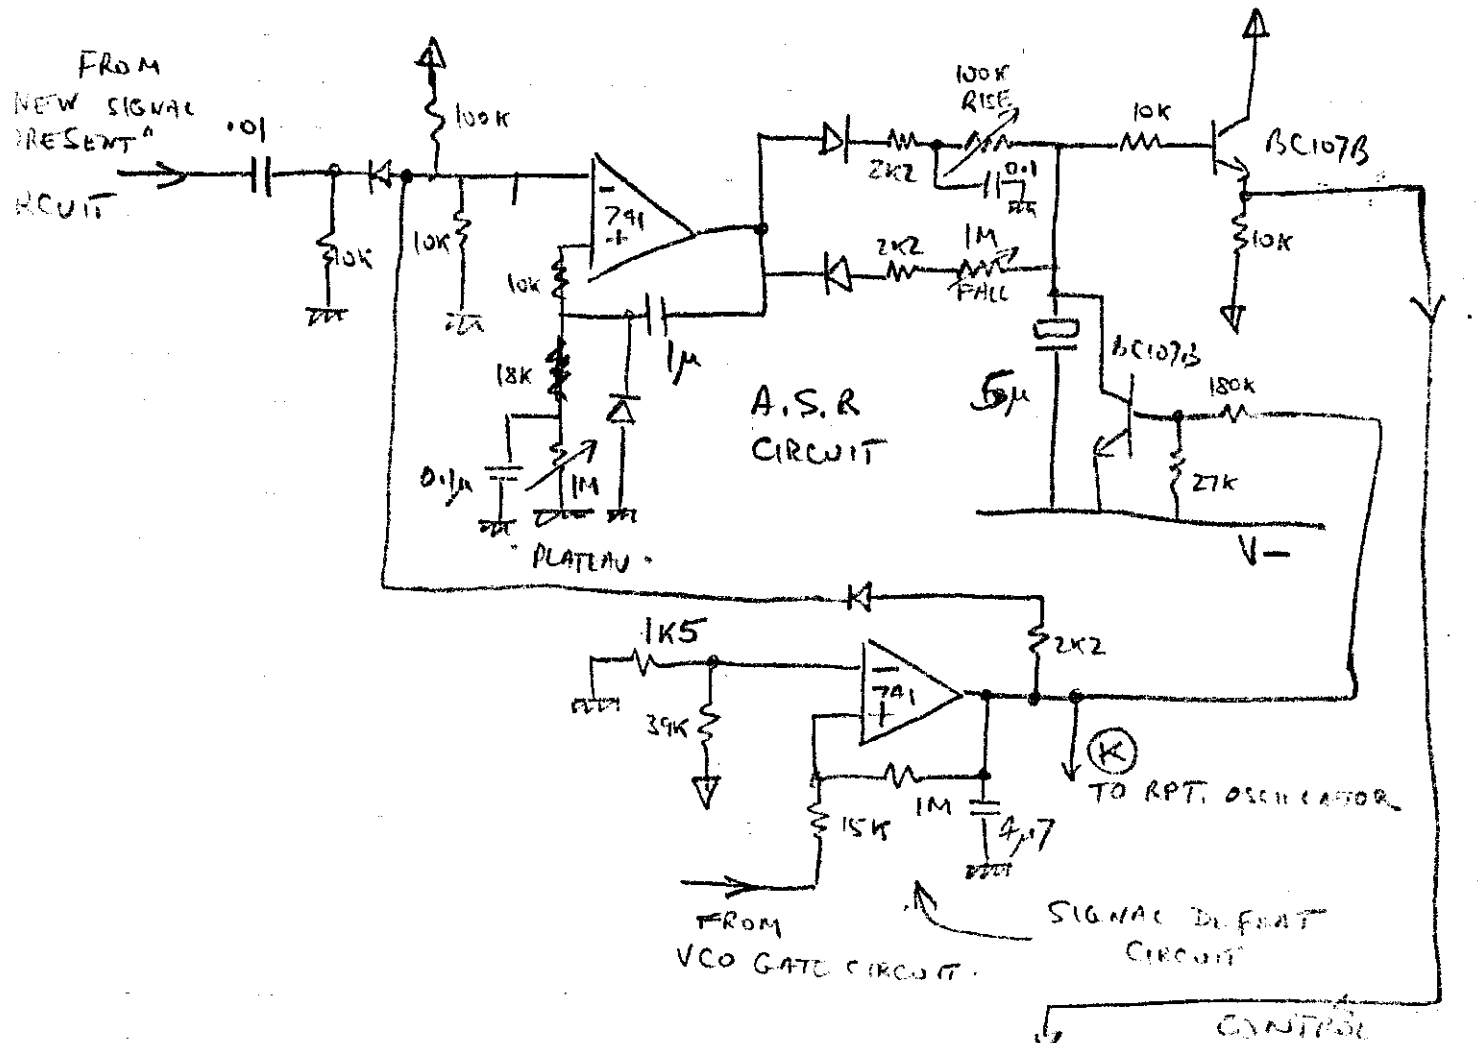 FROM
NEW SIGNAL
PRESENT"
RCUIT
.01
10K
100K
10K
-
741
+
10K
18K
0.1µ
1M
"PLATEAU"
1µ
2K2
100K
RISE
0.1
2K2
1M
FALL
10K
BC107B
10K
A.S.R
CIRCUIT
BC107B
180K
27K
V-
1K5
39K
-
741
+
2K2
15K
1M
4µ7
K
TO RPT. OSCILLATOR
FROM
VCO GATE CIRCUIT.
SIGNAL DEFEAT
CIRCUIT
CONTROL